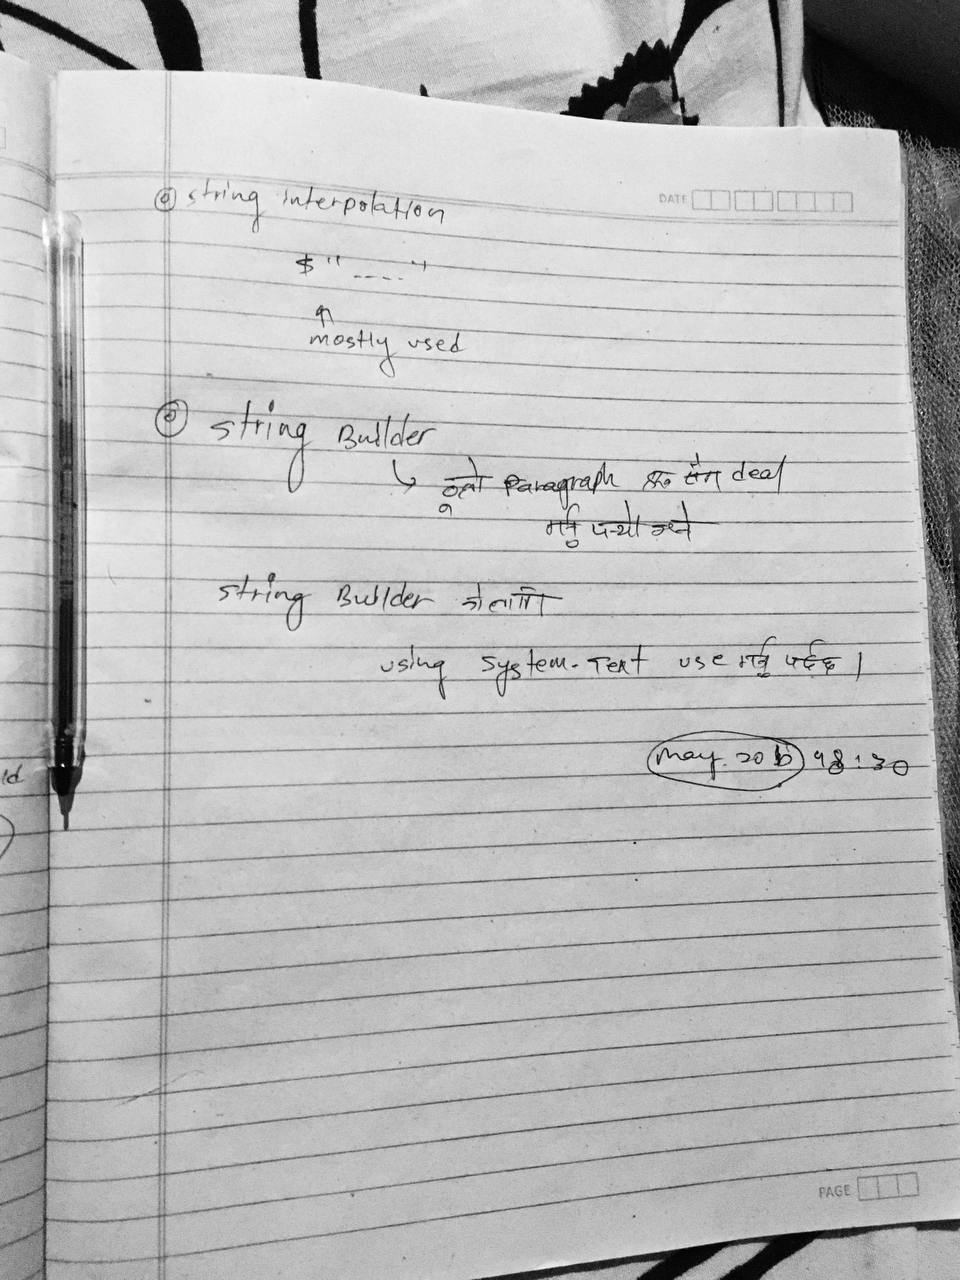 string interpolation
DATE
$ " ---- "
mostly used
string Builder
ठूलो Paragraph हरु सँग deal
गर्नु पर्‍यो भने
string Builder को लागि
using System.Text use गर्नु पर्दछ ।
id
May 20
:30
PAGE